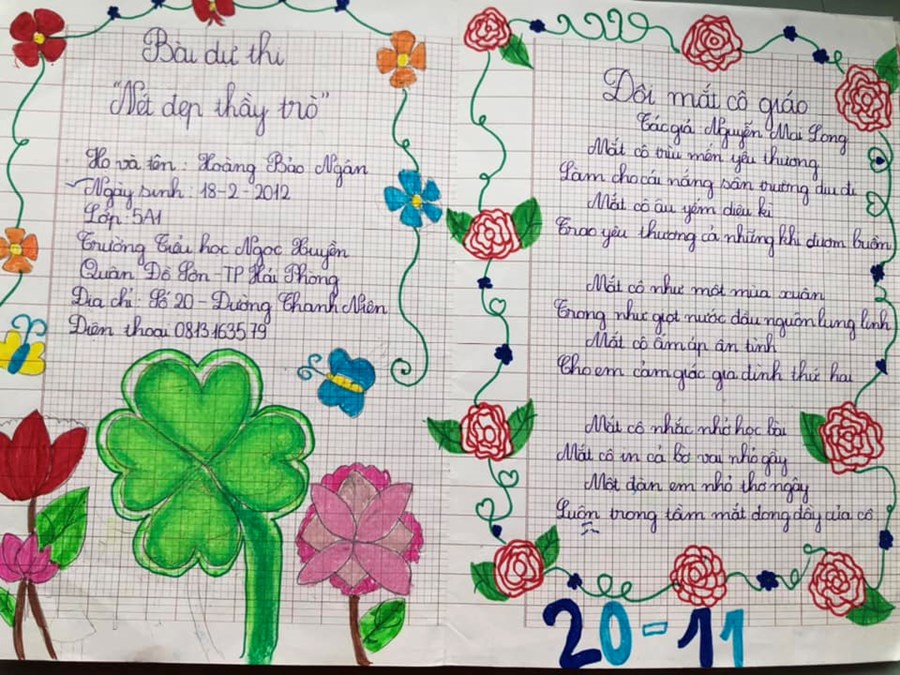 Bài dự thi
"Nét đẹp thầy trò"
Họ và tên : Hoàng Bảo Ngân
Ngày sinh : 18-2-2012
Lớp: 5A1
Trường Tiểu học Ngọc Xuyên
Quận Đồ Sơn - TP Hải Phòng
Địa chỉ: Số 20 - Đường Thanh Niên
Điện thoại 0813163579
Đôi mắt cô giáo
Tác giả Nguyễn Mai Long
Mắt cô trìu mến yêu thương
Làm cho cái nắng sân trường dịu đi
Mắt cô âu yếm diệu kì
Trao yêu thương cả những khi đượm buồn
Mắt cô như một mùa xuân
Trong như giọt nước đầu nguồn lung linh
Mắt cô ấm áp ân tình
Cho em cảm giác gia đình thứ hai
Mắt cô nhắc nhở học bài
Mắt cô in cả bờ vai nhỏ gầy
Một đàn em nhỏ thơ ngây
Luôn trong tầm mắt dong đầy của cô
20-11